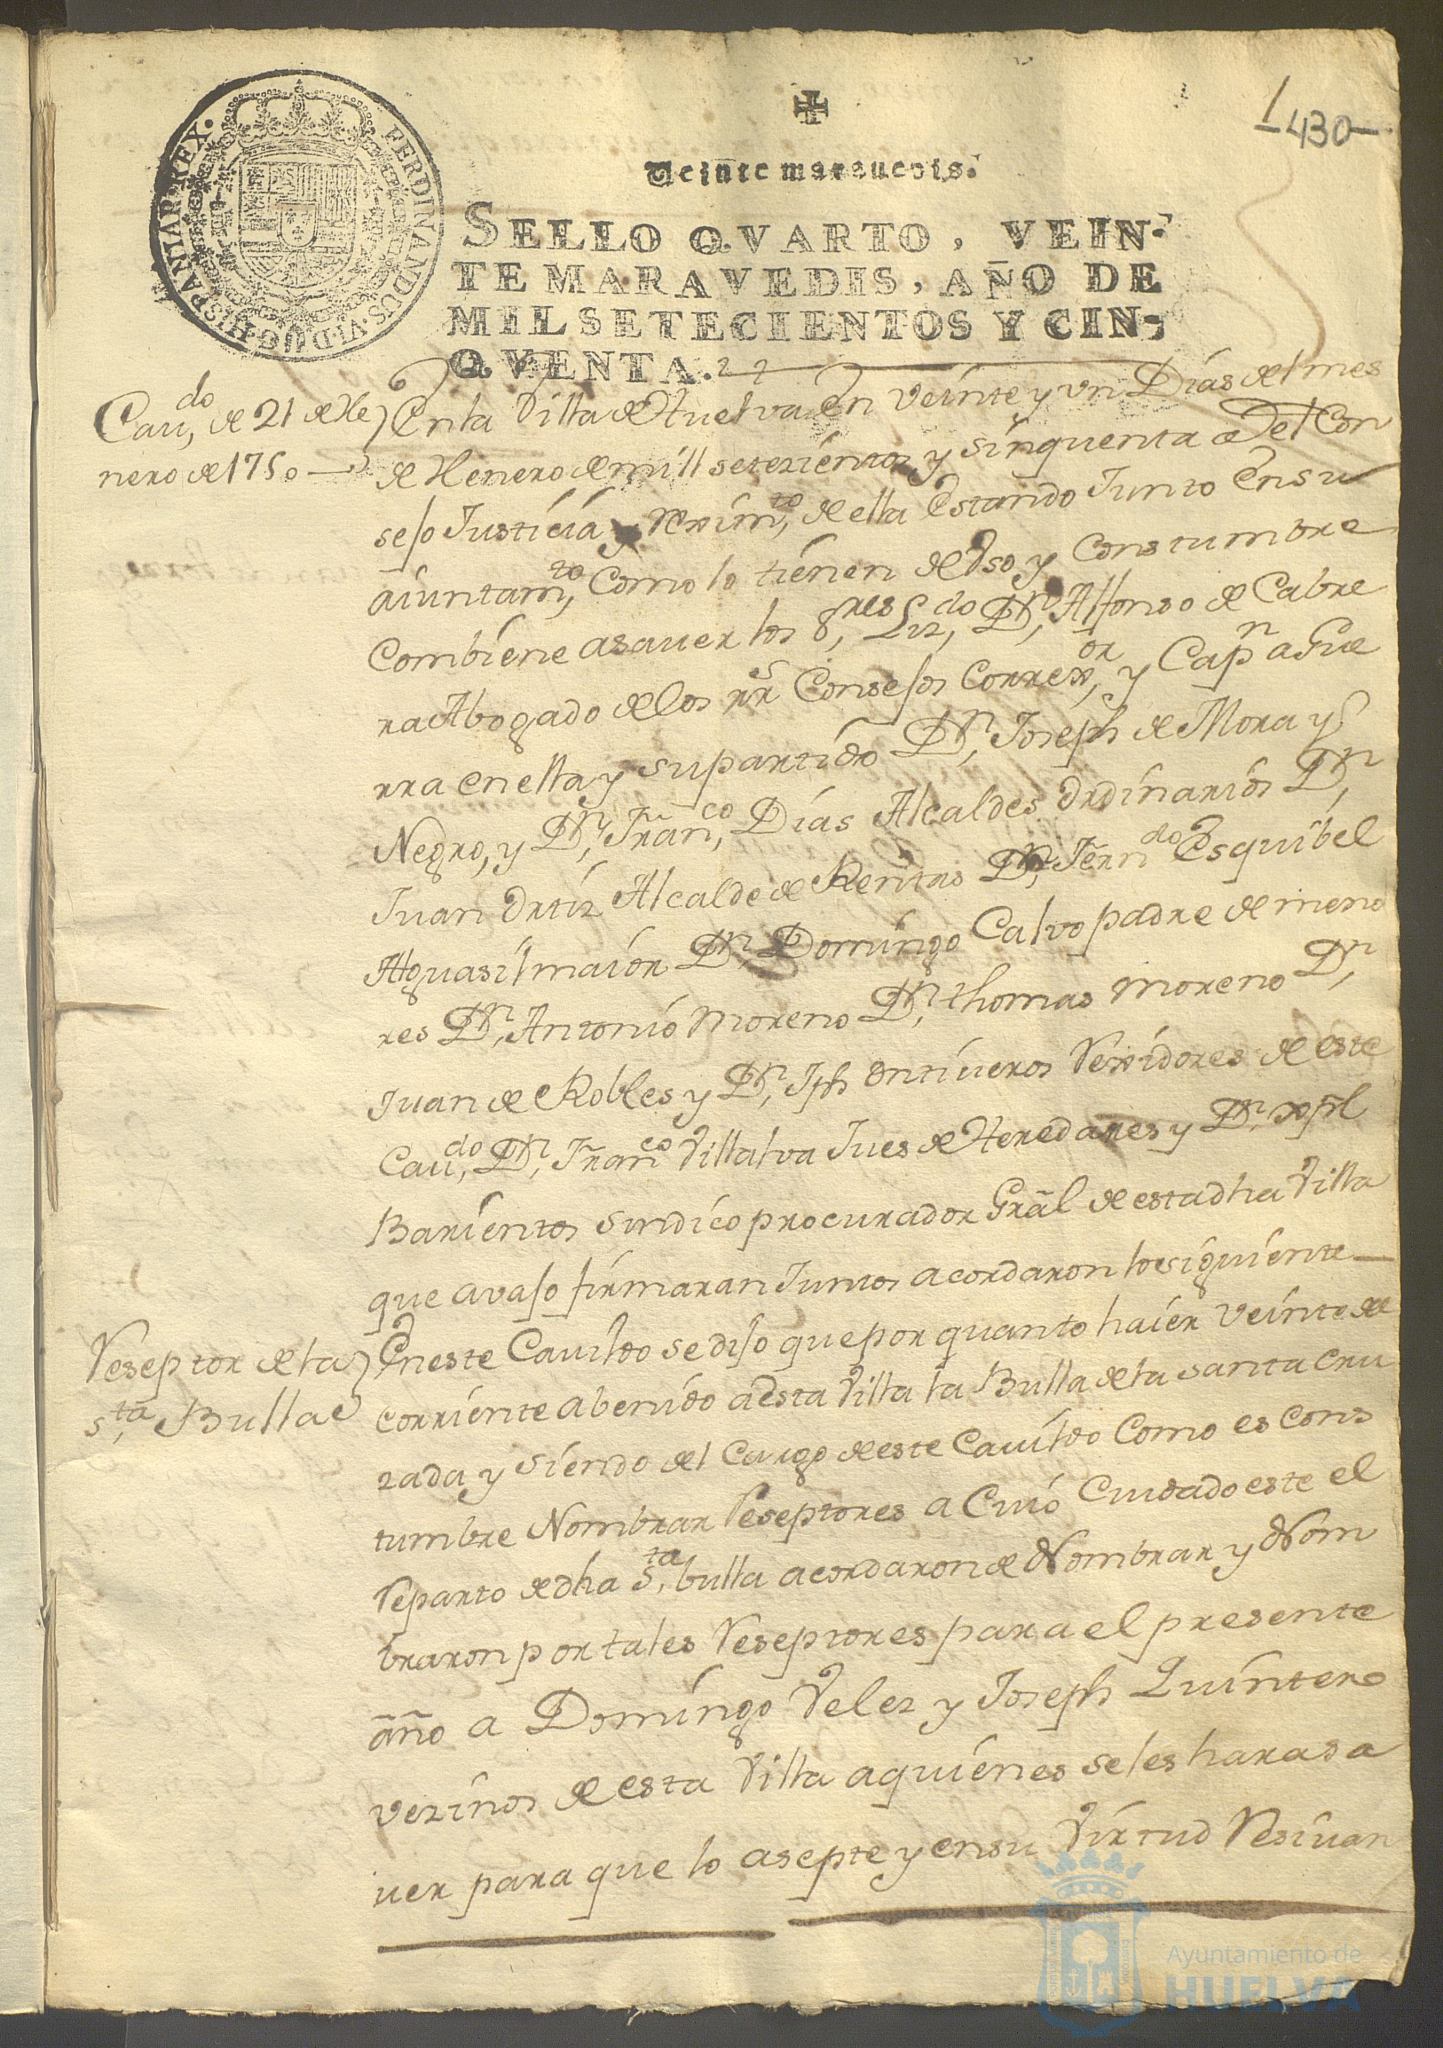 1
430
Veinte marauedis.
SELLO QVARTO, VEIN-
TE MARAVEDIS, AÑO DE
MIL SETECIENTOS Y CIN-
QVENTA.
FERDINANDUS.VI.D.G.HISPANIAR.REX.
Cau,do de 21 de He
nero de 1750
En la Villa de Huelva en veinte y un Dias del mes
de Henero de mill setezientos y sinquenta el Con
sejo Justicia y Reximto, de ella Estando Junto En su
aiuntamto, Como lo tienen de Vso y Constumbre
Combiene asauer los Sres, Lizdo, Dn, Alfonso de Cabre
ra Abogado de los Rs Consejos Correxor, y Capn a Gue
rra en ella y su partido Dn, Joseph de Mora y
Negro, y Dn, Franco, Dias Alcaldes Ordinarios Dn,
Juan Ortiz Alcalde de Rentas Dn, Ferndo Esquibel
Alguasil maior Dn, Domingo Calvo padre de meno
res Dn, Antonio Moreno Dn, thomas Moreno Dn,
Juan de Robles y Dn, Jph Ontiueros Rexidores de este
Caudo, Dn, Franco Villalva Jues de Heredades y Dn, Xpl
Barientos Sindico procurador Gral de esta dha Villa
que avajo firmaran Juntos acordaron lo siguiente
Reseptor de la
Sta, Bulla
En este Cauildo se dijo que por quanto haier veinte de
corriente a benido a Esta Villa la Bulla de la santa Cru
zada y siendo del Cargo de este Cauildo Como es Cons
tumbre Nombrar Reseptores a Cuio Cuidado este el
Reparto de dha Sta, bulla acordaron de Nombrar y Nom
braron por tales Reseptores para el presente
año a Domingo Velez y Joseph Quintero
vezinos de esta Villa a quienes se les hara sa
uer para que lo asepte y en su Virtud Resiuan
Ayuntamiento de
HUELVA